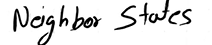 Neighbor States